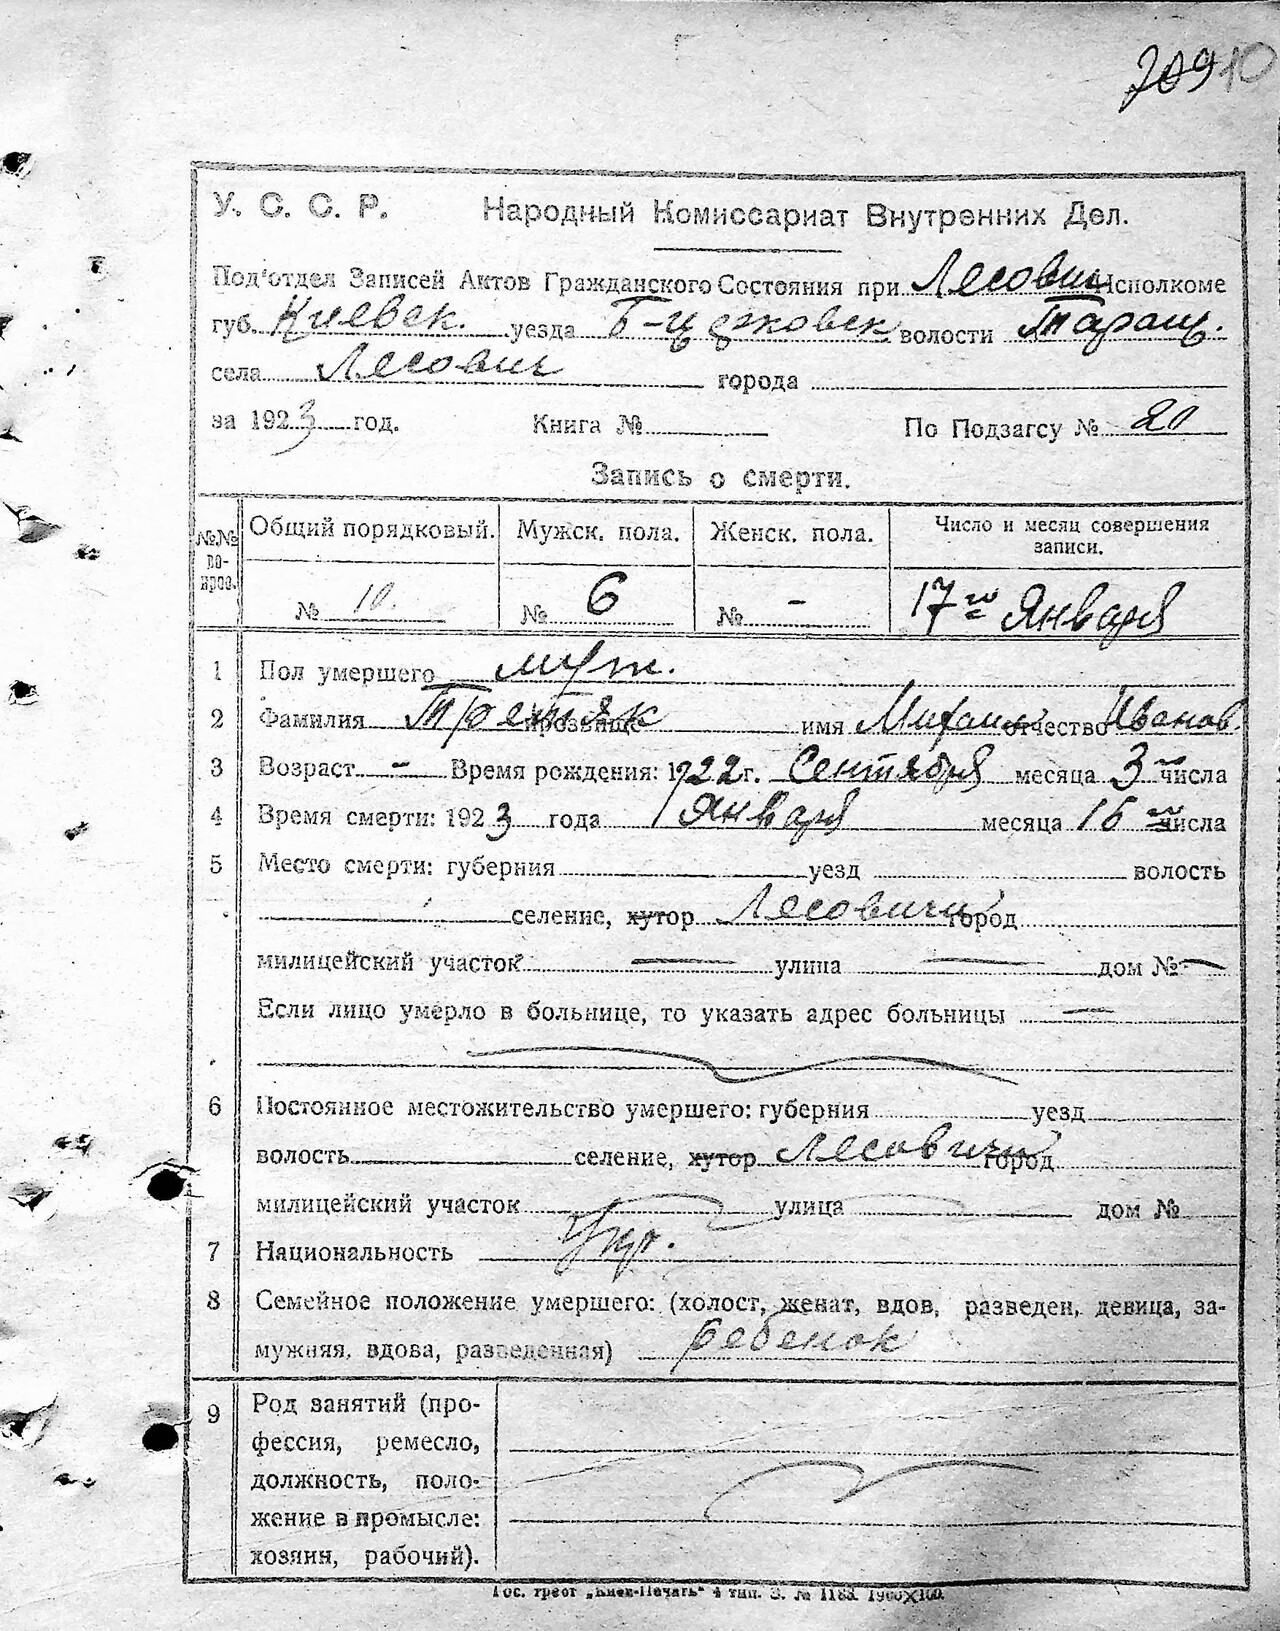 709 10
У. С. С. Р. Народный Комиссариат Внутренних Дел.
Под'отдел Записей Актов Гражданского Состояния при Лесович Исполкоме
губ. Киевск. уезда Б-церковск волости Таращ.
села Лесович города
за 1923 год. Книга № По Подзагсу № 20
Запись о смерти.
№№ вопрос. Общий порядковый. Мужск. пола. Женск. пола. Число и месяц совершения записи.
№ 10. № 6 № - 17го Января
1 Пол умершего муж.
2 Фамилия Третяк прозвище имя Михаил отчество Иванов.
3 Возраст - Время рождения: 1922 г. Сентября месяца 3 числа
4 Время смерти: 1923 года Января месяца 16 числа
5 Место смерти: губерния уезд волость
селение, хутор Лесовичи город
милицейский участок — улица — дом № —
Если лицо умерло в больнице, то указать адрес больницы —
6 Постоянное местожительство умершего: губерния уезд
волость селение, хутор Лесовичи город
милицейский участок улица дом №
7 Национальность Укр.
8 Семейное положение умершего: (холост, женат, вдов, разведен, девица, за-
мужняя, вдова, разведенная) ребенок
9 Род занятий (про-
фессия, ремесло,
должность, поло-
жение в промысле:
хозяин, рабочий).
Гос. трест „Киев-Печать" 4 тип. З. № 1183. 1900Х100.